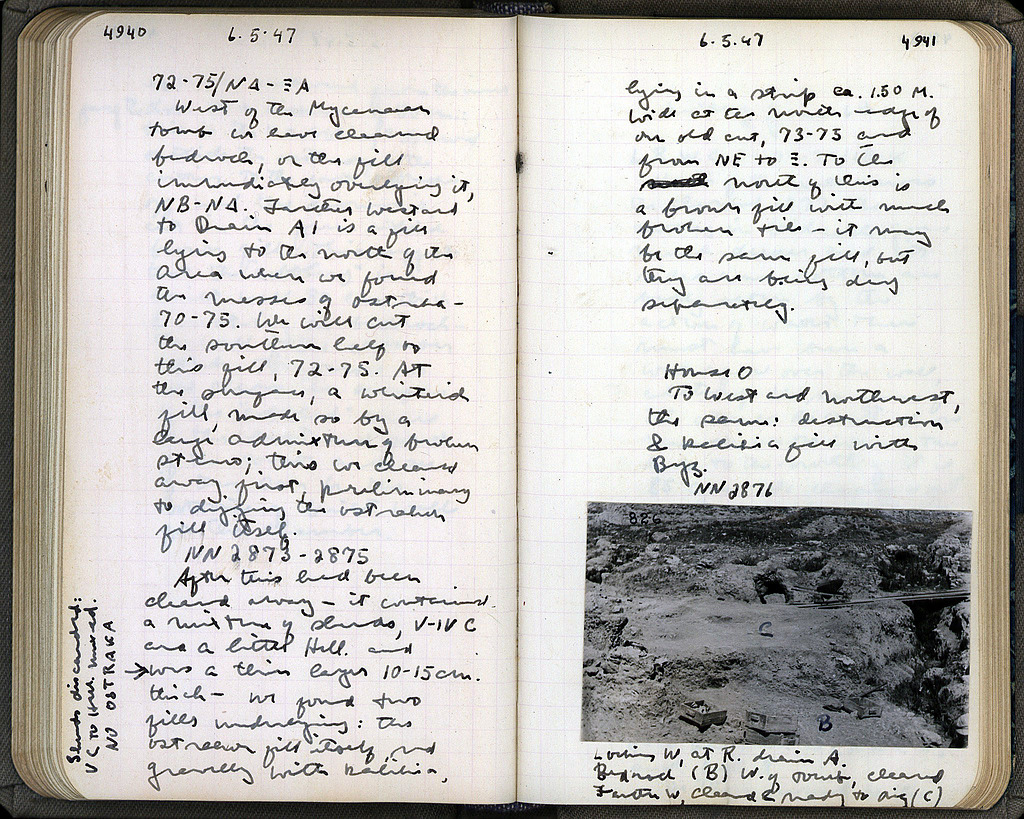 4940
6.5.47
72-75/ΝΔ-ΞΑ
West of the Mycenaean
tomb we have cleared
bedrock, or the fill
immediately overlying it,
ΝΒ-ΝΔ. Farther westward
to Drain A1 is a fill
lying to the north of the
area where we found
the masses of ostraka -
70-75. We will cut
the southern half of
this fill, 72-75. At
the surface, a whiteish
fill, made so by a
large admixture of broken
stones; this we cleared
away first, preliminary
to digging the ostrakon
fill itself.
NN 2873-2875
After this had been
cleared away - it contained
a mixture of sherds, V-IV C
and a little Hell. and
→ was a thin layer 10-15 cm.
thick - we found two
fills underlying: the
ostrakon fill itself, and
gravelly with kalibia,
Sherds discarded:
V C to Hell. mixed.
NO OSTRAKA
6.5.47
4941
lying in a strip ca. 1.50 M.
wide at the north edge of
our old cut, 73-75 and
from ΝΕ to Ξ. To the
north of this is
a brown fill with much
broken tile - it may
be the same fill, but
they are being dug
separately.
House O
To west and northwest,
the same: destruction
& kalibia fill with
Byz.
NN 2876
826
C
B
Looking W. at R. drain A.
Bedrock (B) W. of tomb, cleared
Farther W, cleared & ready to dig (C)